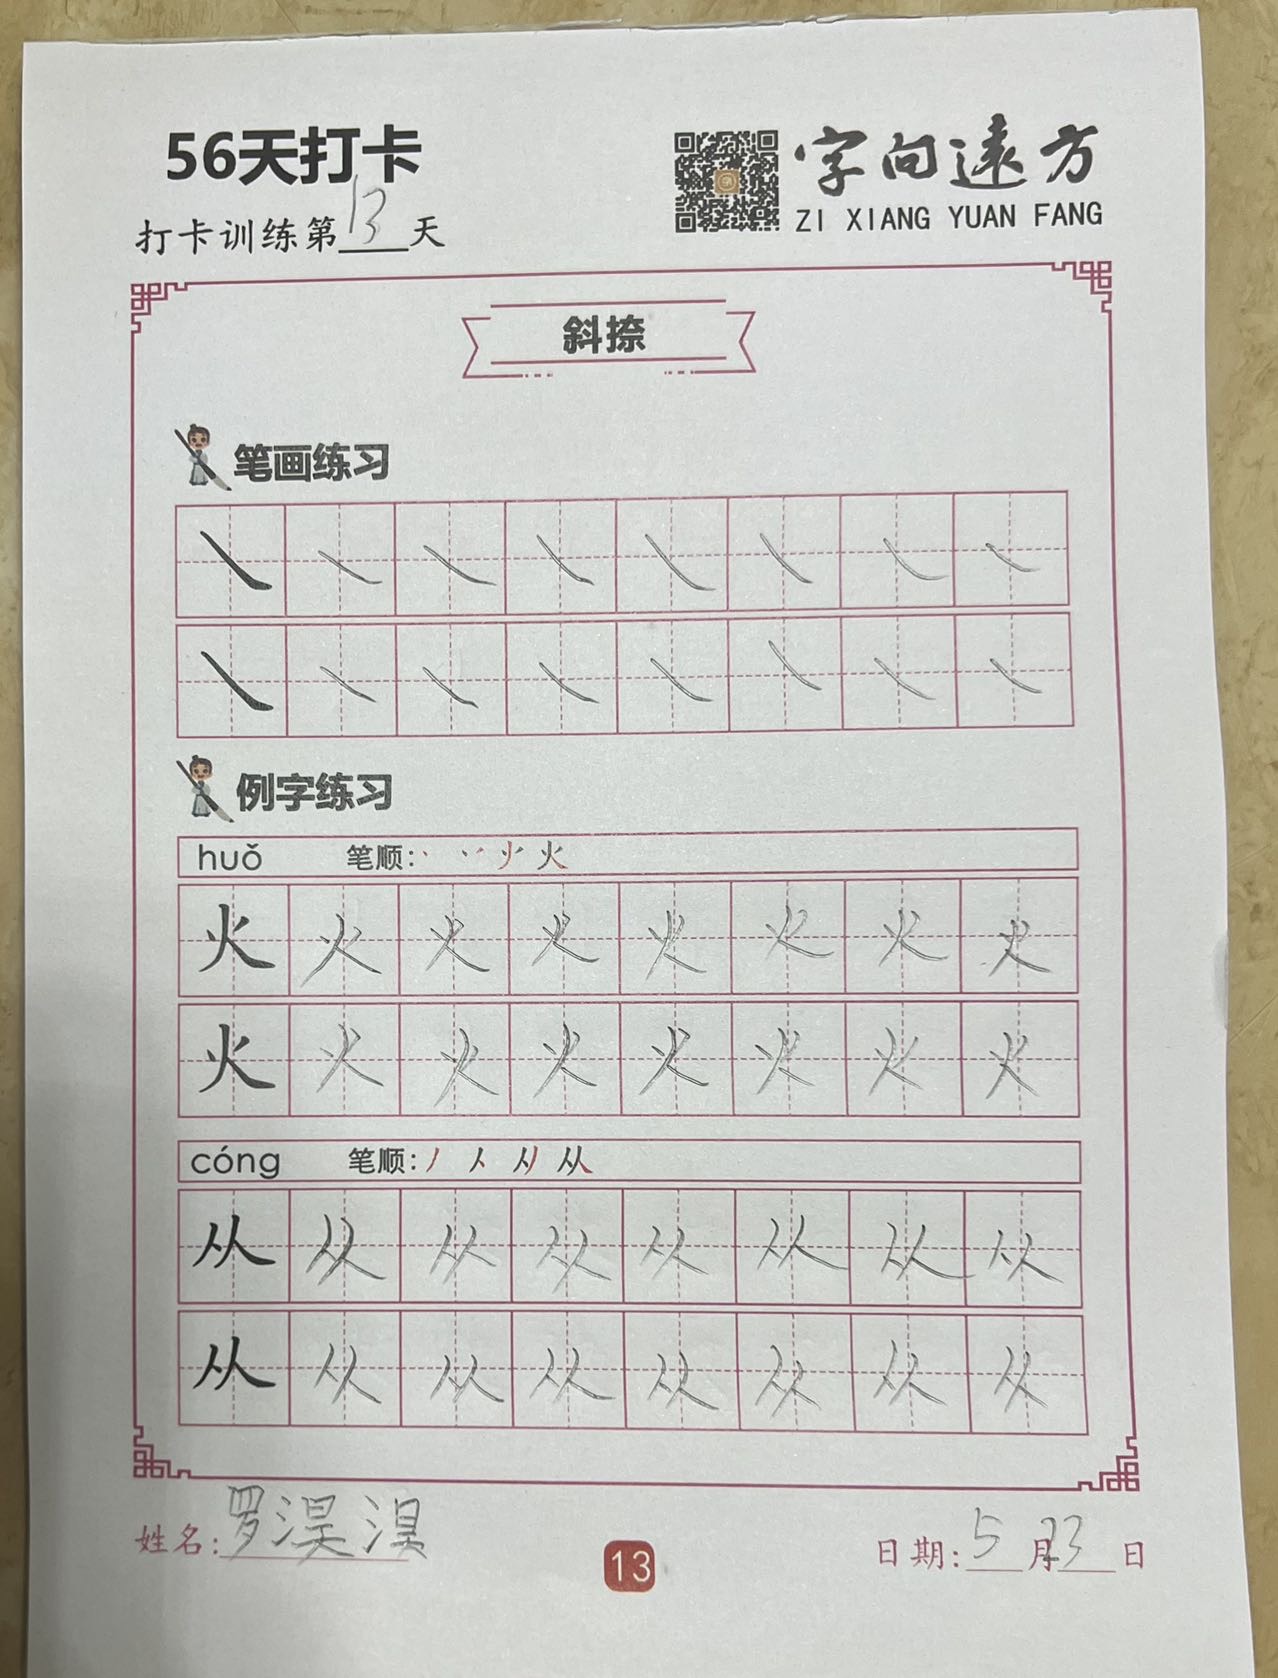 56天打卡
字向遠方
ZI XIANG YUAN FANG
打卡训练第13天
斜捺
笔画练习
例字练习
huǒ 笔顺: 火
火 火 火 火 火 火 火 火
火 火 火 火 火 火 火 火
cóng 笔顺: 丿 人 从
从 从 从 从 从 从 从 从
从 从 从 从 从 从 从 从
姓名: 罗淏湨
13
日期: 5月23日